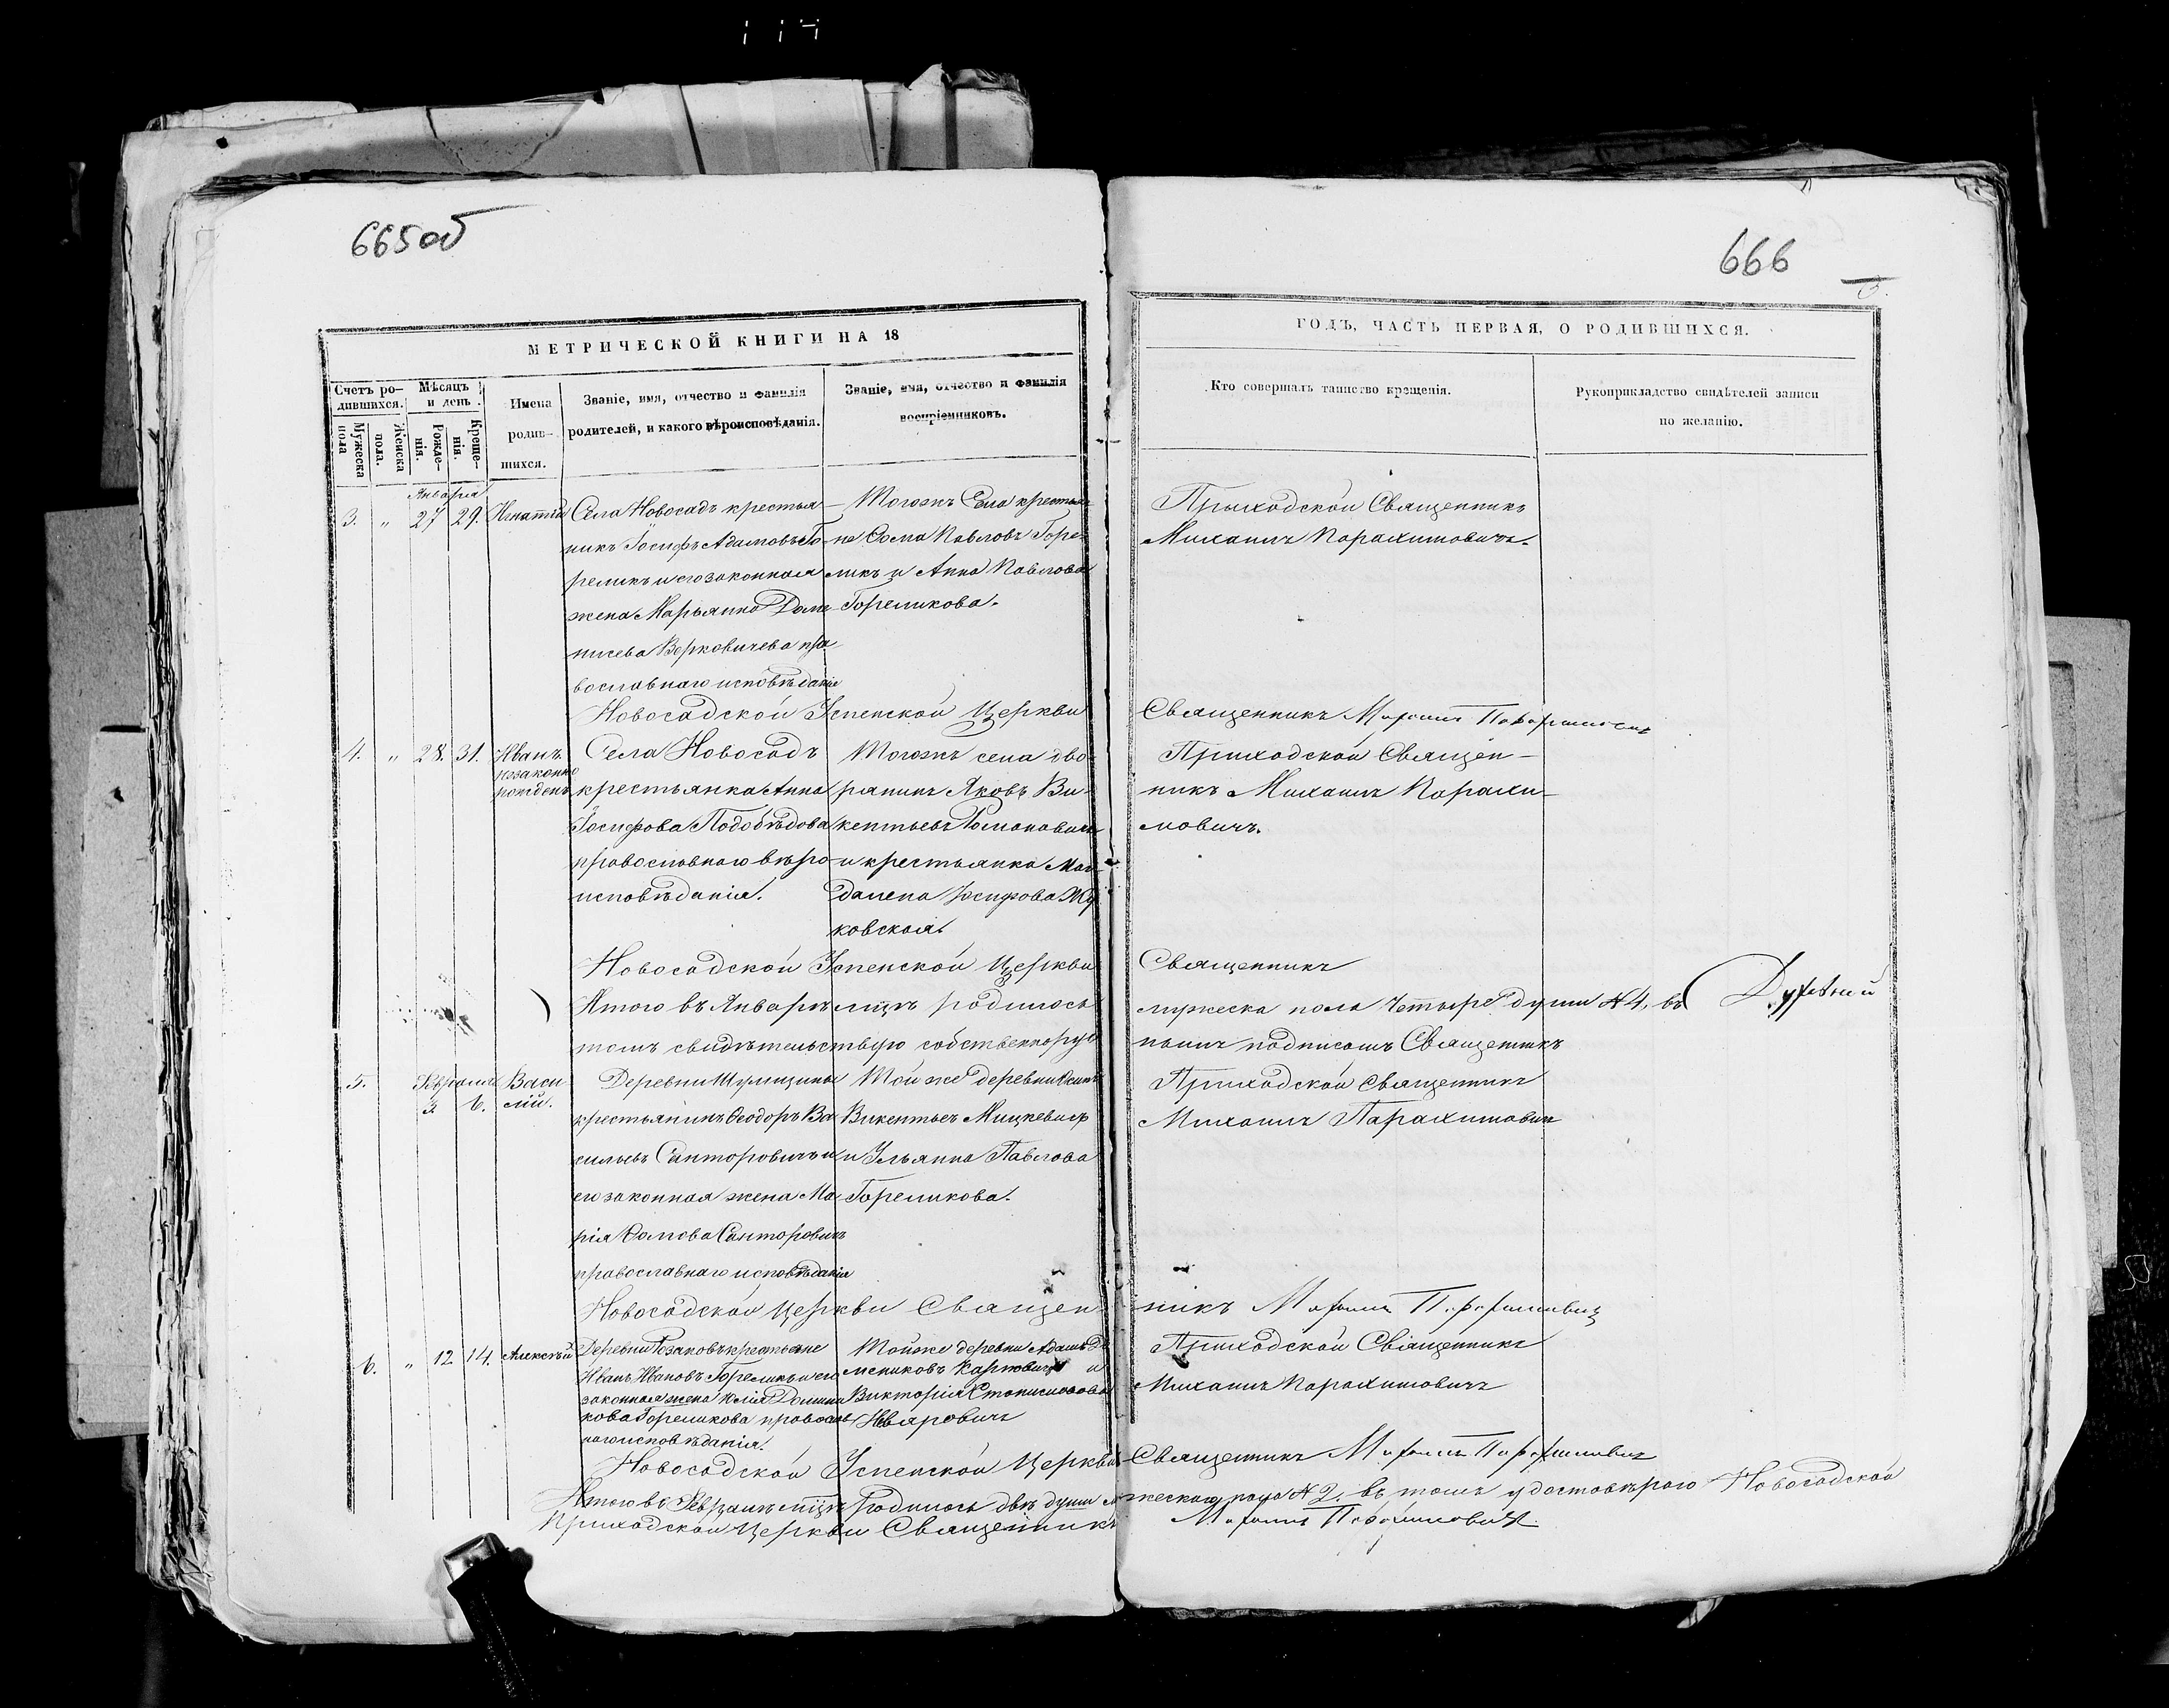 665 об
666
МЕТРИЧЕСКОЙ КНИГИ НА 18
ГОДЪ, ЧАСТЬ ПЕРВАЯ, О РОДИВШИХСЯ.
Счетъ ро-
дившихся.
Мужеска
пола
Женска
пола.
Мѣсяцъ
и день
Рожде-
нія.
Креще-
нія.
Имена
родив-
шихся.
Званіе, имя, отчество и фамилія
родителей, и какого вѣроисповѣданія.
Званіе, имя, отчество и фамилія
воспріемниковъ.
Кто совершалъ таинство крещенія.
Рукоприкладство свидѣтелей записи
по желанію.
Января
3. " 27 29. Игнатій
Села Новосадъ крестья-
никъ Іосифъ Адамовъ Го-
реликъ и его законная
жена Марьянна Доме-
Верковичева пра
вославнаго исповѣданія
Тогожъ Села крестья-
не Фома Павловъ Горе-
ликъ и Анна Павлова
Гореликова.
Приходской Священникъ
Михаилъ Парахимовичъ.
Новосадской Успенской Церкви Священникъ Михаилъ Парахимовичъ
4. " 28. 31. Иванъ
незаконно
рожденъ
Села Новосадъ
крестьянка Анна
Іосифова Подобѣдова
православнаго вѣро-
исповѣданія.
Тогожъ села дво-
рянинъ Яковъ Ви-
кентьевъ Романовичъ
и крестьянка Маг-
далена Іосифова Жу
ковская.
Приходской Священ-
никъ Михаилъ Парахи-
мовичъ.
Новосадской Успенской Церкви Священникъ
Итого въ Январѣ мцѣ родилось мужеска пола Четыре души № 4. въ
томъ свидѣтельствую собственнору нымъ подписомъ Священникъ
5. Февраля
3 6. Васи
лій.
Деревни Шумщины
крестьянинъ Ѳеодоръ Ва
сильевъ Санторовичъ и
его законная жена Ма
рія Фомова Санторовичъ
православнаго исповѣданія
Той же деревни Осипъ
Викентьевъ Мицкевичъ
и Ульянна Павлова
Гореликова.
Приходской Священникъ
Михаилъ Парахимовичъ
Новосадской Церкви Священникъ Михаилъ Парахимовичъ
6. " 12 14. Алексѣй
Деревни крестьяне
Иванъ Ивановъ Гореликъ и его
законная жена Юлія Домини
кова Гореликова православ
наго исповѣданія.
Тойже деревни Адамъ До
мениковъ Карповичъ и
Викторія Станиславова
Приходской Священникъ
Михаилъ Парахимовичъ
Новосадской Успенской Церкви Священникъ Михаилъ Парахимовичъ
Итого въ Февралѣ мцѣ родилось двѣ души мужескаго пола № 2. въ томъ удостовѣряю Новосадской
Приходской Церкви Священникъ Михаилъ Парахимовичъ